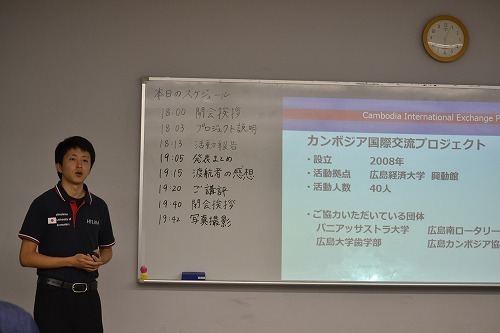 本日のスケジュール
18:00 開会挨拶
18:03 プロジェクト説明
18:13 活動報告
19:05 発表まとめ
19:15 渡航者の感想
19:20 ご講評
19:40 閉会挨拶
19:42 写真撮影
Cambodia International Exchange P
カンボジア国際交流プロジェクト
・設立 2008年
・活動拠点 広島経済大学 興動館
・活動人数 40人
・ご協力いただいている団体
パニアッサストラ大学 広島南ロータリー
広島大学歯学部 広島カンボジア協